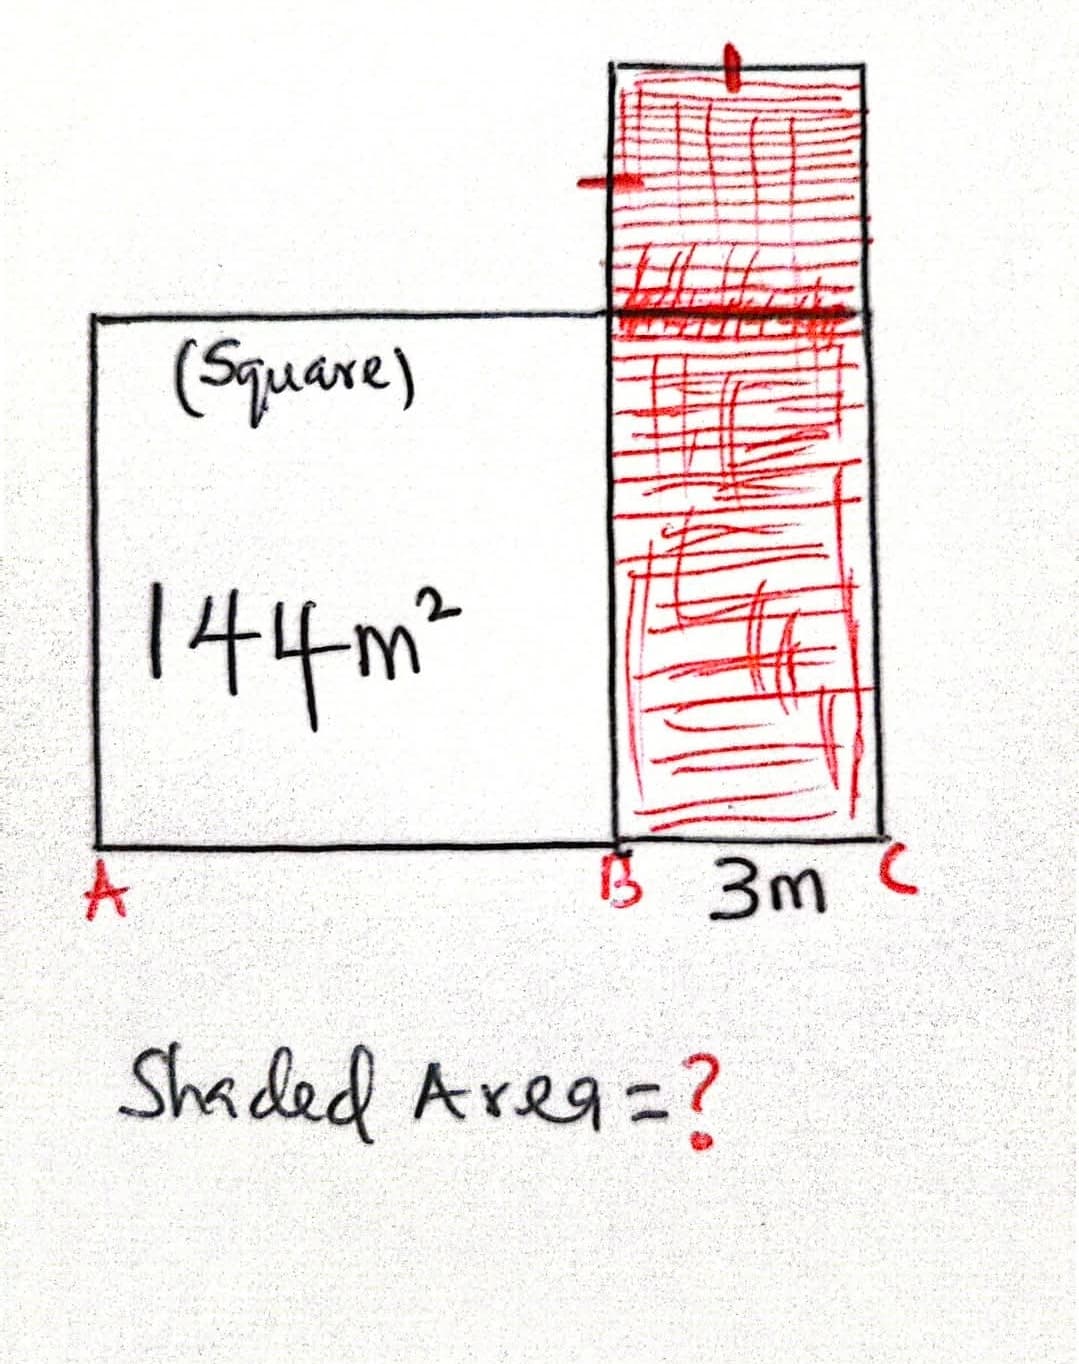 (Square)
144m²
A
B
3m
C
Shaded Area = ?